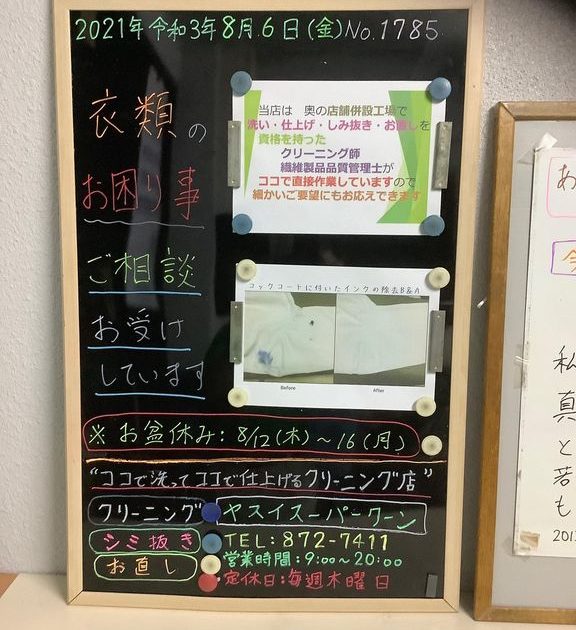 2021年令和3年8月6日(金)No.1785
衣類の
お困り事
ご相談
お受け
しています
当店は 奥の店舗併設工場で
洗い・仕上げ・しみ抜き・お直しを
資格を持った
クリーニング師
繊維製品品質管理士が
ココで直接作業していますので
細かいご要望にもお応えできます
コックコートに付いたインクの除去B&A
Before
After
※お盆休み:8/12(木)~16(月)
"ココで洗ってココで仕上げるクリーニング店"
クリーニング ヤスイスーパークーン
シミ抜き
お直し
TEL:872-7411
営業時間:9:00~20:00
定休日:毎週木曜日
あ
私
真
と
若
も
2013